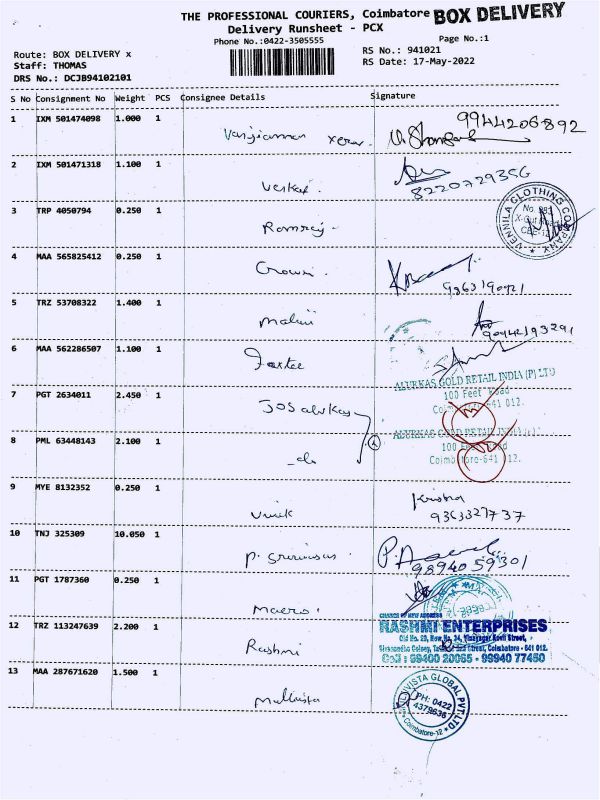 THE PROFESSIONAL COURIERS, Coimbatore BOX DELIVERY
Delivery Runsheet - PCX
Phone No.:0422-3505555
Page No.:1
Route: BOX DELIVERY x
RS No.: 941021
Staff: THOMAS
RS Date: 17-May-2022
DRS No.: DCJB94102101
S No Consignment No Weight PCS Consignee Details Signature
1 IXM 501474098 1.000 1
9944206892
2 IXM 501471318 1.100 1
Venkat.
8220729356
3 TRP 4050794 0.250 1
Ramraj.
VENNILA CLOTHING COMPANY
4 MAA 565825412 0.250 1
Crown.
5 TRZ 53708322 1.400 1
Malini
6 MAA 562286507 1.100 1
ALURKAS GOLD RETAIL INDIA (P) LTD
100 Feet Road
Coimbatore-641 012.
7 PGT 2634011 2.450 1
JOS alukkas
ALURKAS GOLD RETAIL INDIA
100 Feet Road
Coimbatore-641 012.
8 PML 63448143 2.100 1
-do
9 MYE 8132352 0.250 1
Vivek
Krishna
10 TNJ 325309 10.050 1
P. Srinivasan.
9894059301
11 PGT 1787360 0.250 1
Macro.
12 TRZ 113247639 2.200 1
Rashmi
CHANGE OF NEW ADDRESS
RASHMI ENTERPRISES
Old No. 20, New No. 34, Vinayagar Kovil Street,
Coimbatore - 641 012.
Cell : 99400 20065 - 99940 77450
13 MAA 287671620 1.500 1
Mallvista
GLOBAL PVT LTD
PH: 0422
4379636
Coimbatore-12